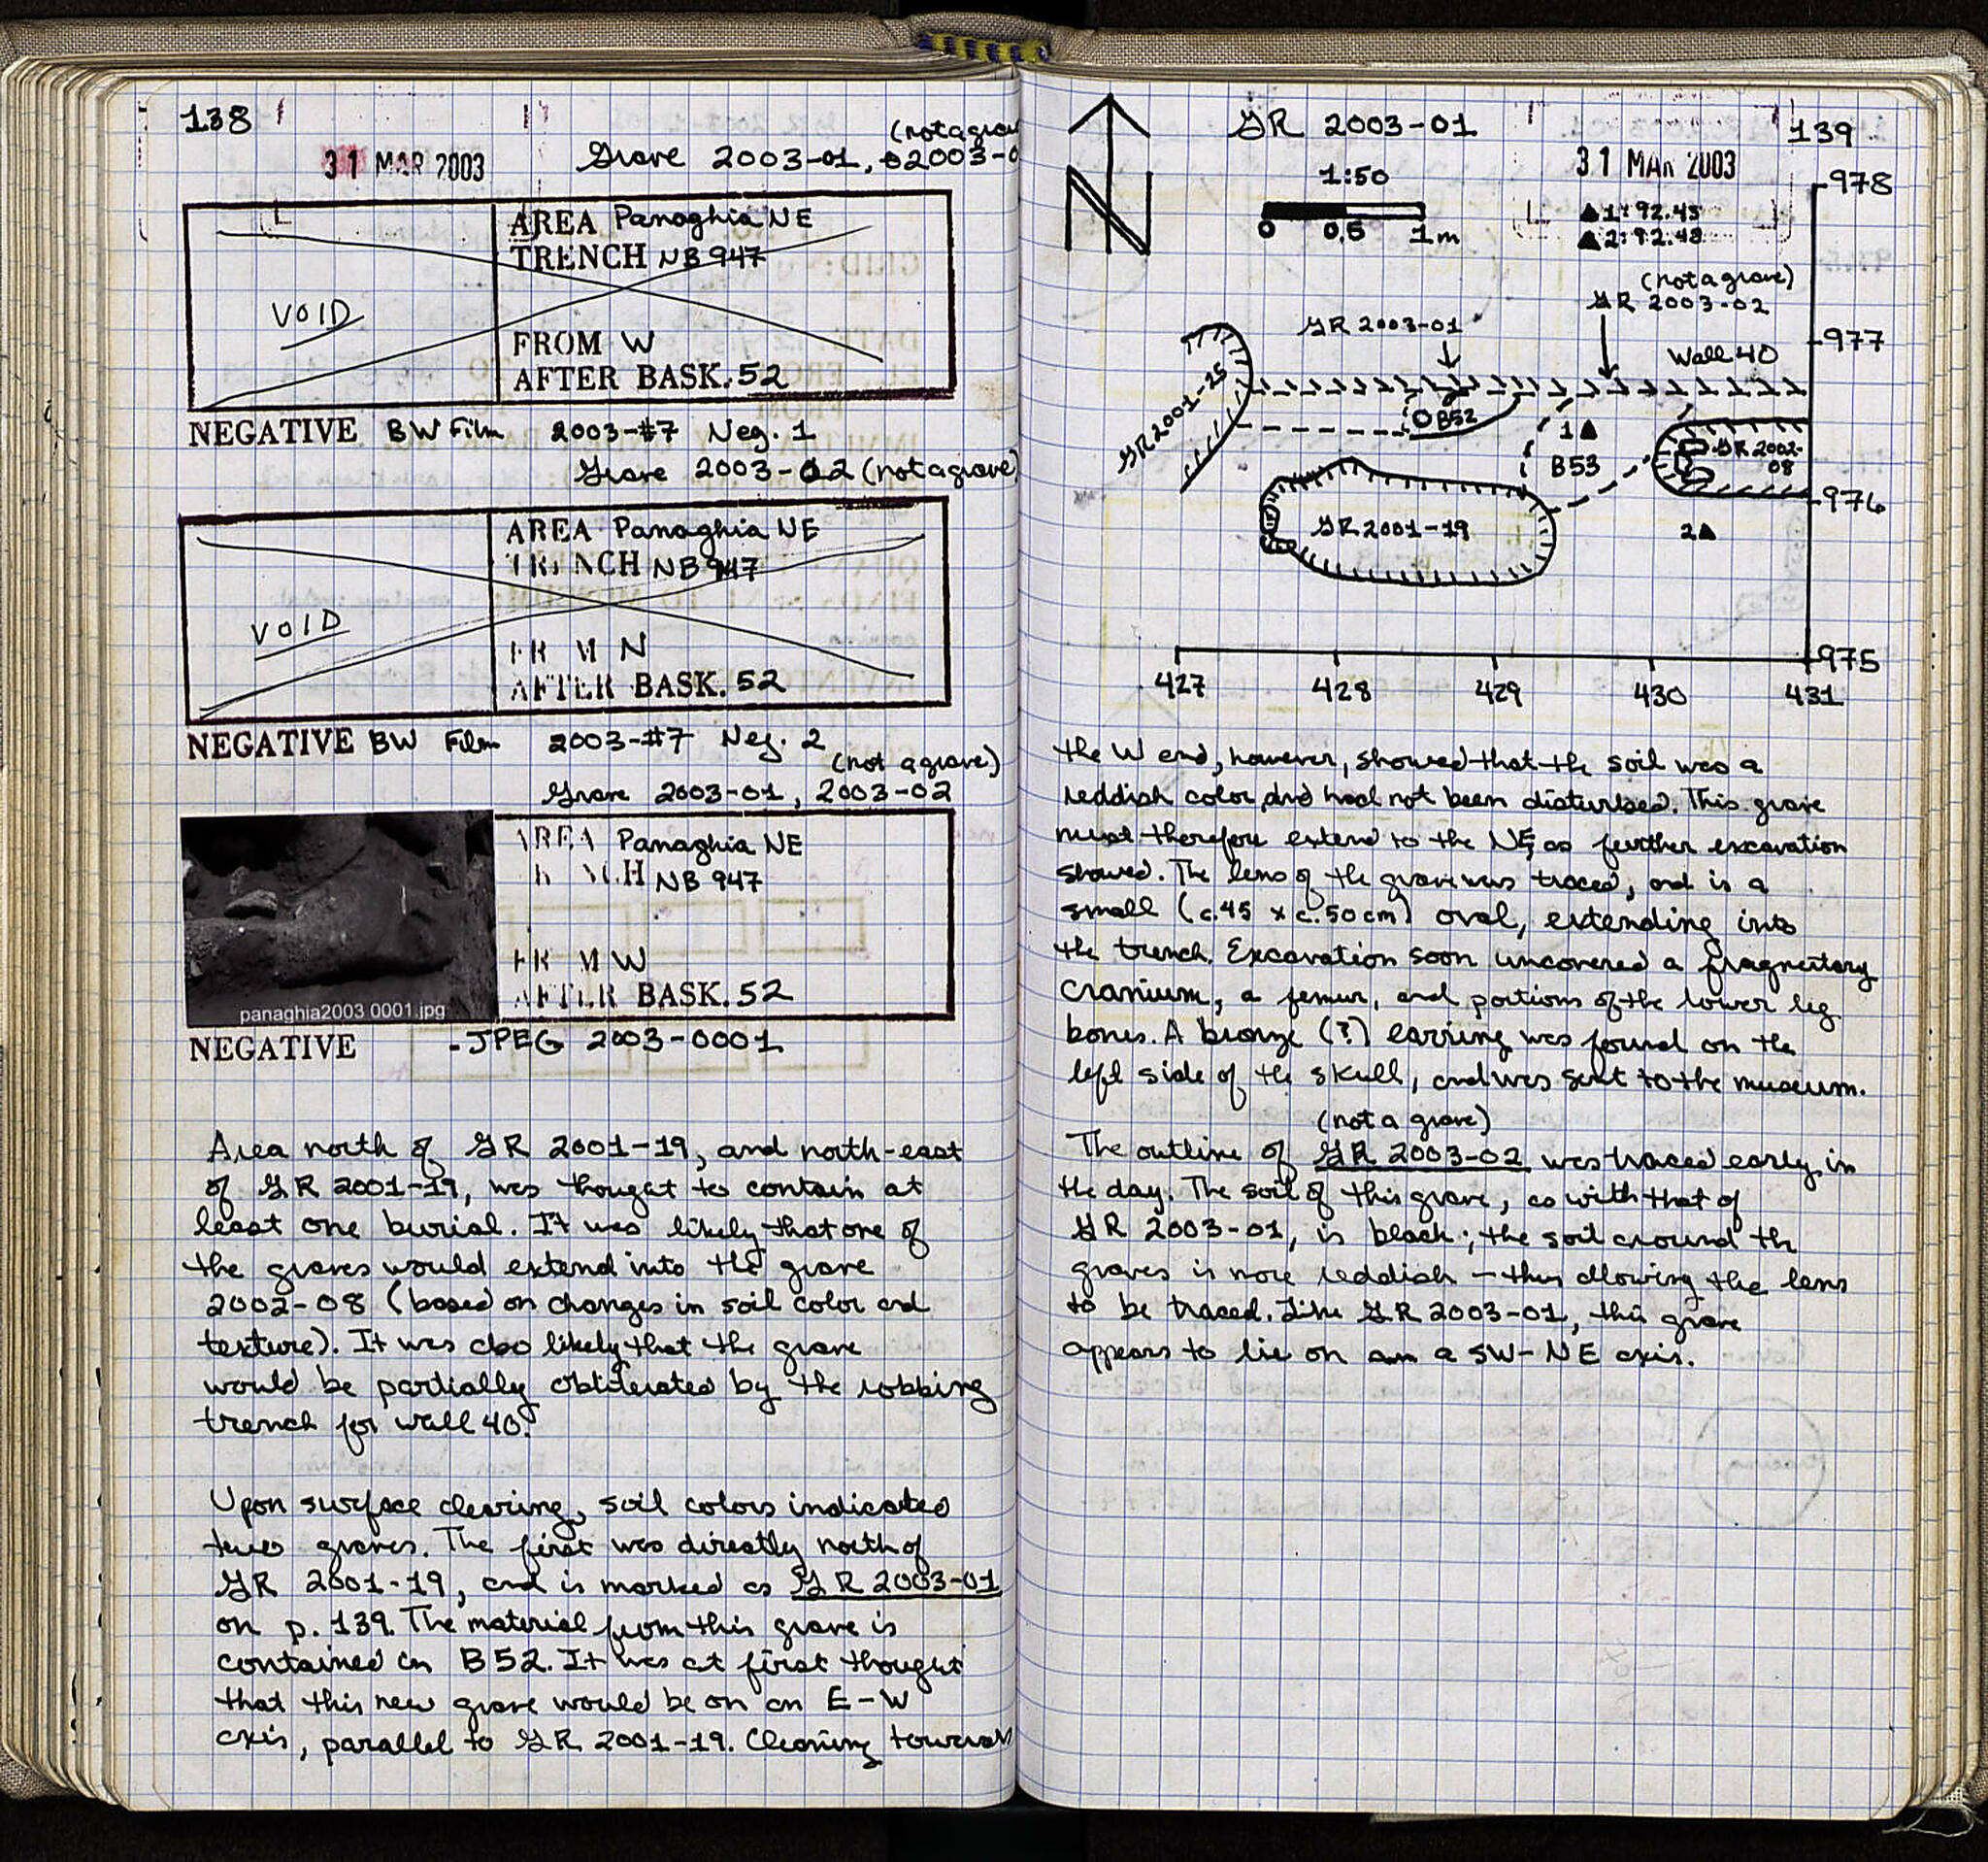 138
31 MAR 2003
(not a grave
Grave 2003-01, 2003-0
AREA Panaghia NE
TRENCH NB 947
VOID
FROM W
AFTER BASK. 52
NEGATIVE BW Film 2003-#7 Neg. 1
Grave 2003-02 (not a grave)
AREA Panaghia NE
TRENCH NB 947
VOID
FROM N
AFTER BASK. 52
NEGATIVE BW Film 2003-#7 Neg. 2
(not a grave)
Grave 2003-01, 2003-02
AREA Panaghia NE
TRENCH NB 947
FROM W
AFTER BASK. 52
panaghia2003 0001.jpg
NEGATIVE - JPEG 2003-0001
Area north of GR 2001-19, and north-east
of GR 2001-19, was thought to contain at
least one burial. It was likely that one of
the graves would extend into the grave
2002-08 (based on changes in soil color and
texture). It was also likely that the grave
would be partially obliterated by the robbing
trench for wall 40.
Upon surface clearing, soil colors indicated
two graves. The first was directly north of
GR 2001-19, and is marked as GR 2003-01
on p. 139. The material from this grave is
contained in B52. It was at first thought
that this new grave would be on an E-W
axis, parallel to GR 2001-19. Cleaning towards
GR 2003-01
139
31 MAR 2003
1:50
0 0,5 1m
N
▲1: 92.43
▲2: 92.48
978
(not a grave)
GR 2003-02
GR 2003-01
977
Wall 40
GR 2001-25
B52
1▲
B53
GR 2002-
08
976
GR 2001-19
2▲
975
427 428 429 430 431
the W end, however, showed that the soil was a
reddish color, and had not been disturbed. This grave
must therefore extend to the NE, as further excavation
showed. The lens of the grave was traced, and is a
small (c.45 x c.50cm) oval, extending into
the trench. Excavation soon uncovered a fragmentary
cranium, a femur, and portions of the lower leg
bones. A bronze (?) earring was found on the
left side of the skull, and was sent to the museum.
(not a grave)
The outline of GR 2003-02 was traced early in
the day. The soil of this grave, as with that of
GR 2003-01, is black; the soil around the
graves is more reddish - thus allowing the lens
to be traced. Like GR 2003-01, this grave
appears to lie on a SW-NE axis.